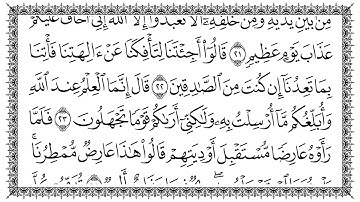 مِنۢ بَيْنِ يَدَيْهِ وَمِنْ خَلْفِهِۦٓ أَلَّا تَعْبُدُوٓا۟ إِلَّا ٱللَّهَ إِنِّىٓ أَخَافُ عَلَيْكُمْ
عَذَابَ يَوْمٍ عَظِيمٍ ٢١ قَالُوٓا۟ أَجِئْتَنَا لِتَأْفِكَنَا عَنْ ءَالِهَتِنَا فَأْتِنَا
بِمَا تَعِدُنَآ إِن كُنتَ مِنَ ٱلصَّـٰدِقِينَ ٢٢ قَالَ إِنَّمَا ٱلْعِلْمُ عِندَ ٱللَّهِ
وَأُبَلِّغُكُم مَّآ أُرْسِلْتُ بِهِۦ وَلَـٰكِنِّىٓ أَرَىٰكُمْ قَوْمًا تَجْهَلُونَ ٢٣ فَلَمَّا
رَأَوْهُ عَارِضًا مُّسْتَقْبِلَ أَوْدِيَتِهِمْ قَالُوا۟ هَـٰذَا عَارِضٌ مُّمْطِرُنَا ۚ